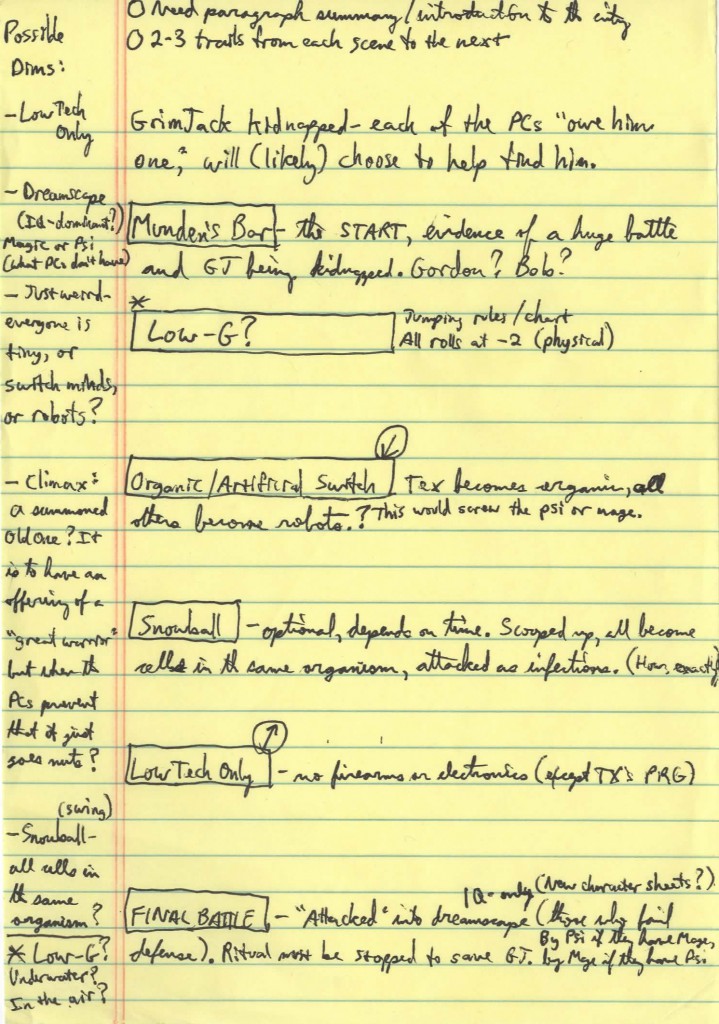 O Need paragraph summary/introduction to th city
O 2-3 trails from each scene to the next
Possible
Dims:
- Low Tech
Only
- Dreamscape
(Id-dominant?)
Magic or Psi
(what PCs don't have)
- Just weird-
everyone is
tiny, or
switch minds,
or robots?
- Climax:
a summoned
Old One? It
is to have an
offering of a
"great warrior"
but when th
PCs prevent
that it just
goes nuts?
(swing)
- Snowball-
all cells in
th same
organism?
* Low-G?
Underwater?
In the air?
GrimJack kidnapped- each of the PCs "owe him
one," will (likely) choose to help find him.
Munden's Bar - the START, evidence of a huge battle
and GJ being kidnapped. Gordon? Bob?
*
Low-G?
Jumping rules/chart
All rolls at -2 (physical)
↓
Organic/Artificial Switch Tex becomes organic, all
others become robots.? This would screw the psi or mage.
Snowball - optional, depends on time. Scooped up, all become
cells in th same organism, attacked as infections. (How, exactly?)
↑
Low Tech Only - no firearms or electronics (except TX's PRG)
IQ-only (New character sheets?)
FINAL BATTLE - "Attacked" into dreamscape (those who fail
defense). Ritual must be stopped to save GJ.
By Psi if they have Mage,
by Mage if they have Psi.